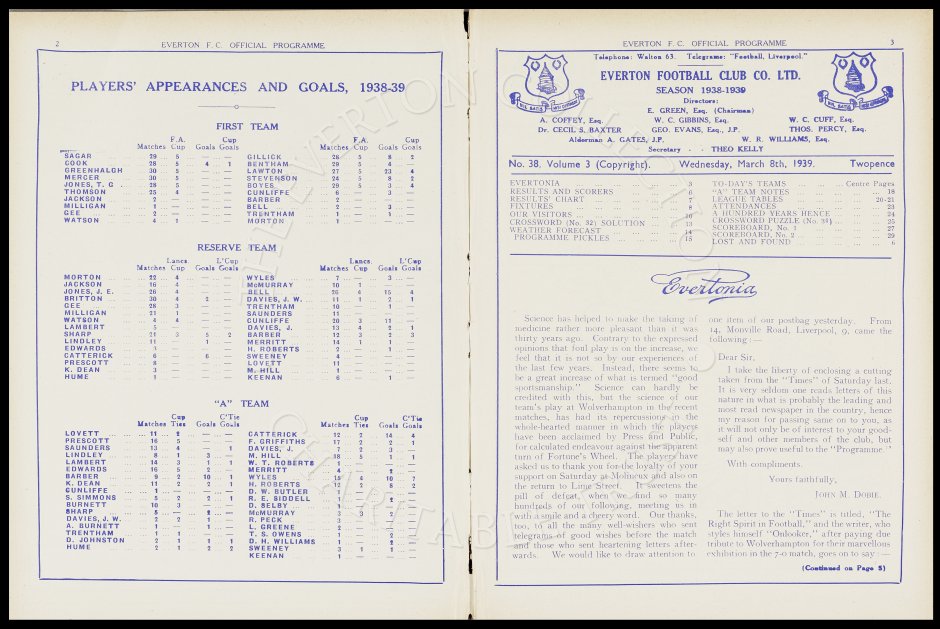 2
EVERTON F.C. OFFICIAL PROGRAMME
PLAYERS' APPEARANCES AND GOALS, 1938-39
FIRST TEAM
F.A. Cup
Matches Cup Goals Goals
SAGAR 29 5 — —
COOK 28 5 4 1
GREENHALGH 30 5 — —
MERCER 30 5 — —
JONES, T. G. 28 5 — —
THOMSON 25 4 — —
JACKSON 2 — — —
MILLIGAN 1 — — —
GEE 2 — — —
WATSON 4 1 — —
F.A. Cup
Matches Cup Goals Goals
GILLICK 28 5 8 2
BENTHAM 29 5 4 —
LAWTON 27 5 23 4
STEVENSON 24 5 8 2
BOYES 29 5 3 4
CUNLIFFE 6 — 3 —
BARBER 2 — — —
BELL 2 — 3 —
TRENTHAM 1 — 1 —
MORTON 1 — — —
RESERVE TEAM
Lancs. L'Cup
Matches Cup Goals Goals
MORTON 22 4 — —
JACKSON 16 4 — —
JONES, J. E. 26 4 — —
BRITTON 30 4 2 —
GEE 28 3 — —
MILLIGAN 21 1 — —
WATSON 4 4 — —
LAMBERT 5 — — —
SHARP 21 3 5 2
LINDLEY 11 — 1 —
EDWARDS
CATTERICK 6 — 6 —
PRESCOTT
K. DEAN
HUME 1 — — —
Lancs. L'Cup
Matches Cup Goals Goals
WYLES 7 — 3 —
McMURRAY 10 1 — —
BELL 26 4 15 4
DAVIES, J. W. 11 1 2 1
TRENTHAM 10 — 1 —
SAUNDERS 11 — — —
CUNLIFFE 20 3 11 —
DAVIES, J. 13 4 2 1
BARBER 12 3 2 3
MERRITT 14 1 1 —
H. ROBERTS
SWEENEY
LOVETT
M. HILL
KEENAN 6 — 1 —
"A" TEAM
Cup C'Tie
Matches Ties Goals Goals
LOVETT 11 2 — —
PRESCOTT 16 5 — —
SAUNDERS 13 4
LINDLEY
LAMBERT 14 3 1 1
EDWARDS 16 5 2 —
BARBER 9 2 10 1
K. DEAN 11 2 2 1
CUNLIFFE 1 — — —
S. SIMMONS 5 2 2 1
BURNETT
SHARP
DAVIES, J. W.
A. BURNETT
TRENTHAM
D. JOHNSTON 2 1 1 1
HUME 2 1 2 2
Cup C'Tie
Matches Ties Goals Goals
CATTERICK 12 2 14 4
F. GRIFFITHS 17 2 2 1
DAVIES, J.
M. HILL
W. T. ROBERTS
MERRITT
WYLES
H. ROBERTS
D. W. BUTLER
R. E. SIDDELL
D. SELBY
McMURRAY
R. PECK
L. GREENE
T. S. OWENS
D. H. WILLIAMS
SWEENEY 3 1 1 —
KEENAN 1 — — —
EVERTON F.C. OFFICIAL PROGRAMME
3
Telephone: Walton 63. Telegrams: "Football, Liverpool."
EVERTON FOOTBALL CLUB CO. LTD.
SEASON 1938-1939
Directors:
E. GREEN, Esq. (Chairman)
A. COFFEY, Esq. W. C. GIBBINS, Esq. W. C. CUFF, Esq.
Dr. CECIL S. BAXTER GEO. EVANS, Esq., J.P. THOS. PERCY, Esq.
Alderman A. GATES, J.P. W. R. WILLIAMS, Esq.
Secretary - - THEO KELLY
No. 38. Volume 3 (Copyright). Wednesday, March 8th, 1939. Twopence
EVERTONIA 3
RESULTS AND SCORERS 6
RESULTS' CHART 7
FIXTURES 8
OUR VISITORS 10
CROSSWORD (No. 32) SOLUTION 13
WEATHER FORECAST 14
PROGRAMME PICKLES 15
TO-DAY'S TEAMS Centre Pages
"A" TEAM NOTES 18
LEAGUE TABLES 20-21
ATTENDANCES 23
A HUNDRED YEARS HENCE 24
CROSSWORD PUZZLE (No. 33) 25
SCOREBOARD, No. 1 27
SCOREBOARD, No. 2 29
LOST AND FOUND 6
Evertonia
Science has helped to make the taking of
medicine rather more pleasant than it was
thirty years ago. Contrary to the expressed
opinions that foul play is on the increase, we
feel that it is not so by our experiences of
the last few years. Instead, there seems to
be a great increase of what is termed "good
sportsmanship." Science can hardly be
credited with this, but the science of our
team's play at Wolverhampton in the recent
matches, has had its repercussions in the
whole-hearted manner in which the players
have been acclaimed by Press and Public,
for calculated endeavour against the apparent
turn of Fortune's Wheel. The players have
asked us to thank you for the loyalty of your
support on Saturday at Molineux and also on
the return to Lime Street. It sweetens the
pill of defeat when we find so many
hundreds of our following, meeting us in
with a smile and a cheery word. Our thanks,
too, to all the many well-wishers who sent
telegrams of good wishes before the match
and those who sent heartening letters after-
wards. We would like to draw attention to
one item of our postbag yesterday. From
14, Monville Road, Liverpool, 9, came the
following :—
Dear Sir,
I take the liberty of enclosing a cutting
taken from the "Times" of Saturday last.
It is very seldom one reads letters of this
nature in what is probably the leading and
most read newspaper in the country, hence
my reason for passing same on to you, as
it will not only be of interest to your good-
self and other members of the club, but
may also prove useful to the "Programme."
With compliments.
Yours faithfully,
JOHN M. DOBIE.
The letter to the "Times" is titled, "The
Right Spirit in Football," and the writer, who
styles himself "Onlooker," after paying due
tribute to Wolverhampton for their marvellous
exhibition in the 7-0 match, goes on to say :—
(Continued on Page 5)